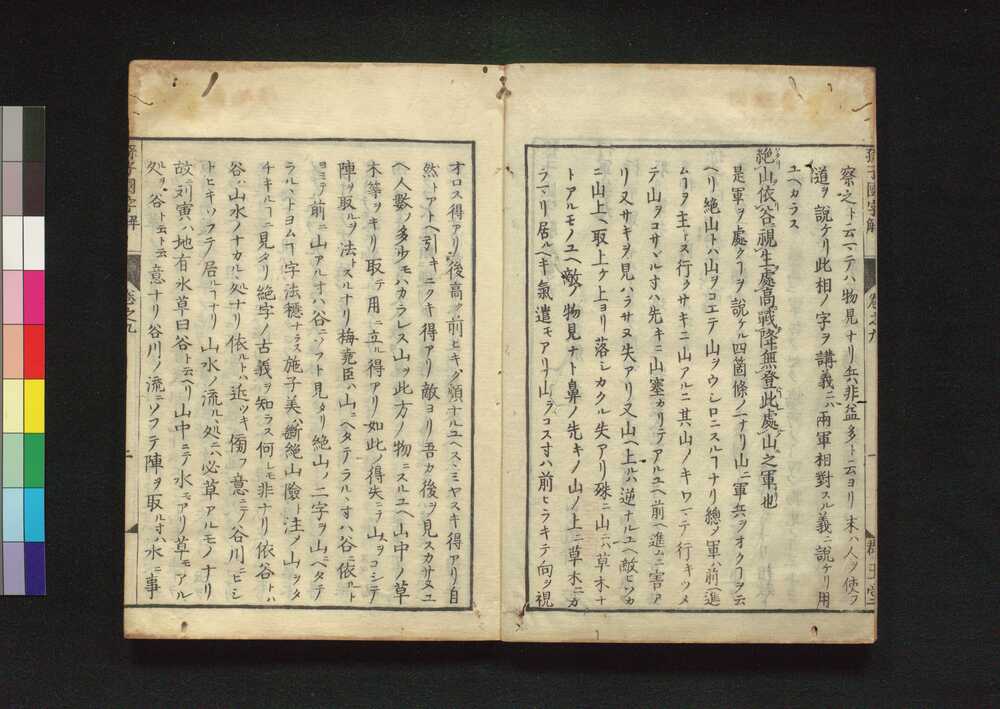 察之ト云マテハ物見ナリ兵非益多ト云ヨリ末ハ人ヲ使フ
道ヲ説ケリ此相ノ字ヲ講義ニハ兩軍相對スル義ニ説ケリ用
ユヘカラス
絶山依谷視生處高戰降無登此處山之軍也
是軍ヲ處クヿヲ説ケル四箇條ノ一ナリ山ニ軍兵ヲオクヿヲ云
ヘリ絶山トハ山ヲコエテ山ヲウシロニスルヿナリ總ノ軍ハ前ヘ進
ムヿヲ主トス行クサキニ山アルニ其山ノキワマテ行キツメ
テ山ヲコサヾル寸ハ先キニ山塞カリテアルユヘ前ヘ進ムニ害ア
リ又サキヲ見ハラサヌ失アリ又山ヘ上ルハ逆ナルユヘ敵ヒソカ
ニ山上ヘ取上ケ上ヨリ落シカクル失アリ殊ニ山ニハ草木ナ
トアルモノユヘ敵ノ物見ナト鼻ノ先キノ山ノ上ニ草木ニカ
ラマリ居ルヘキ氣遣モアリ山ヲコス寸ハ前ヒラキテ向ヲ視
オロス得アリ後高ク前ヒキク順ナルユヘスヽミヤスキ得アリ自
然トアトヘ引キニクキ得アリ敵ヨリ吾カ後ヲ見スカサヌユ
ヘ人數ノ多少モハカラレス山ヲ此方ノ物ニスルユヘ山中ノ草
木等ヲキリ取テ用ニ立ル得アリ如此ノ得失ニテ山ヲコシテ
陣ヲ取ルヲ法トスルナリ梅堯臣ハ山ニヘタテラルヽ寸ハ谷ニ依ルト
ヨミテ前ニ山アル寸ハ谷ニソフト見タリ絶山ノ二字ヲ山ニヘタテ
ラルヽトヨムヿ字法穩ナラス施子美ハ斷絶山險ト注ノ山ヲタ
チキルヿニ見タリ絶字ノ古義ヲ知ラス何レモ非ナリ依谷トハ
谷ハ山水ノナカルヽ処ナリ依ルトハ近ツキ傍フ意ニテ谷川ニヒシ
トヒキソフテ居ルヿナリ山水ノ流ルヽ処ニハ必草アルモノナリ
故ニ刘寅ハ地有水草曰谷ト云ヘリ山中ニテ水モアリ草モアル
処ヲ谷ト云ト云意ナリ谷川ノ流ニソフテ陣ヲ取ル寸ハ水ニ事
孫子國字解
卷之九